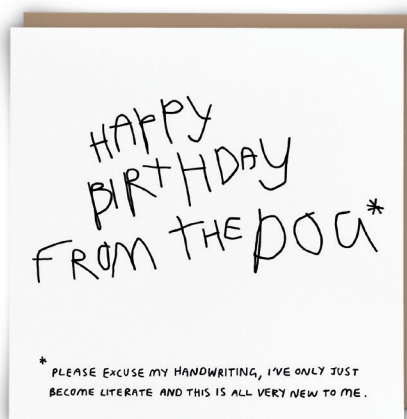 HAPPY
BIRTHDAY
FROM THE DOG*
* PLEASE EXCUSE MY HANDWRITING, I'VE ONLY JUST
BECOME LITERATE AND THIS IS ALL VERY NEW TO ME.